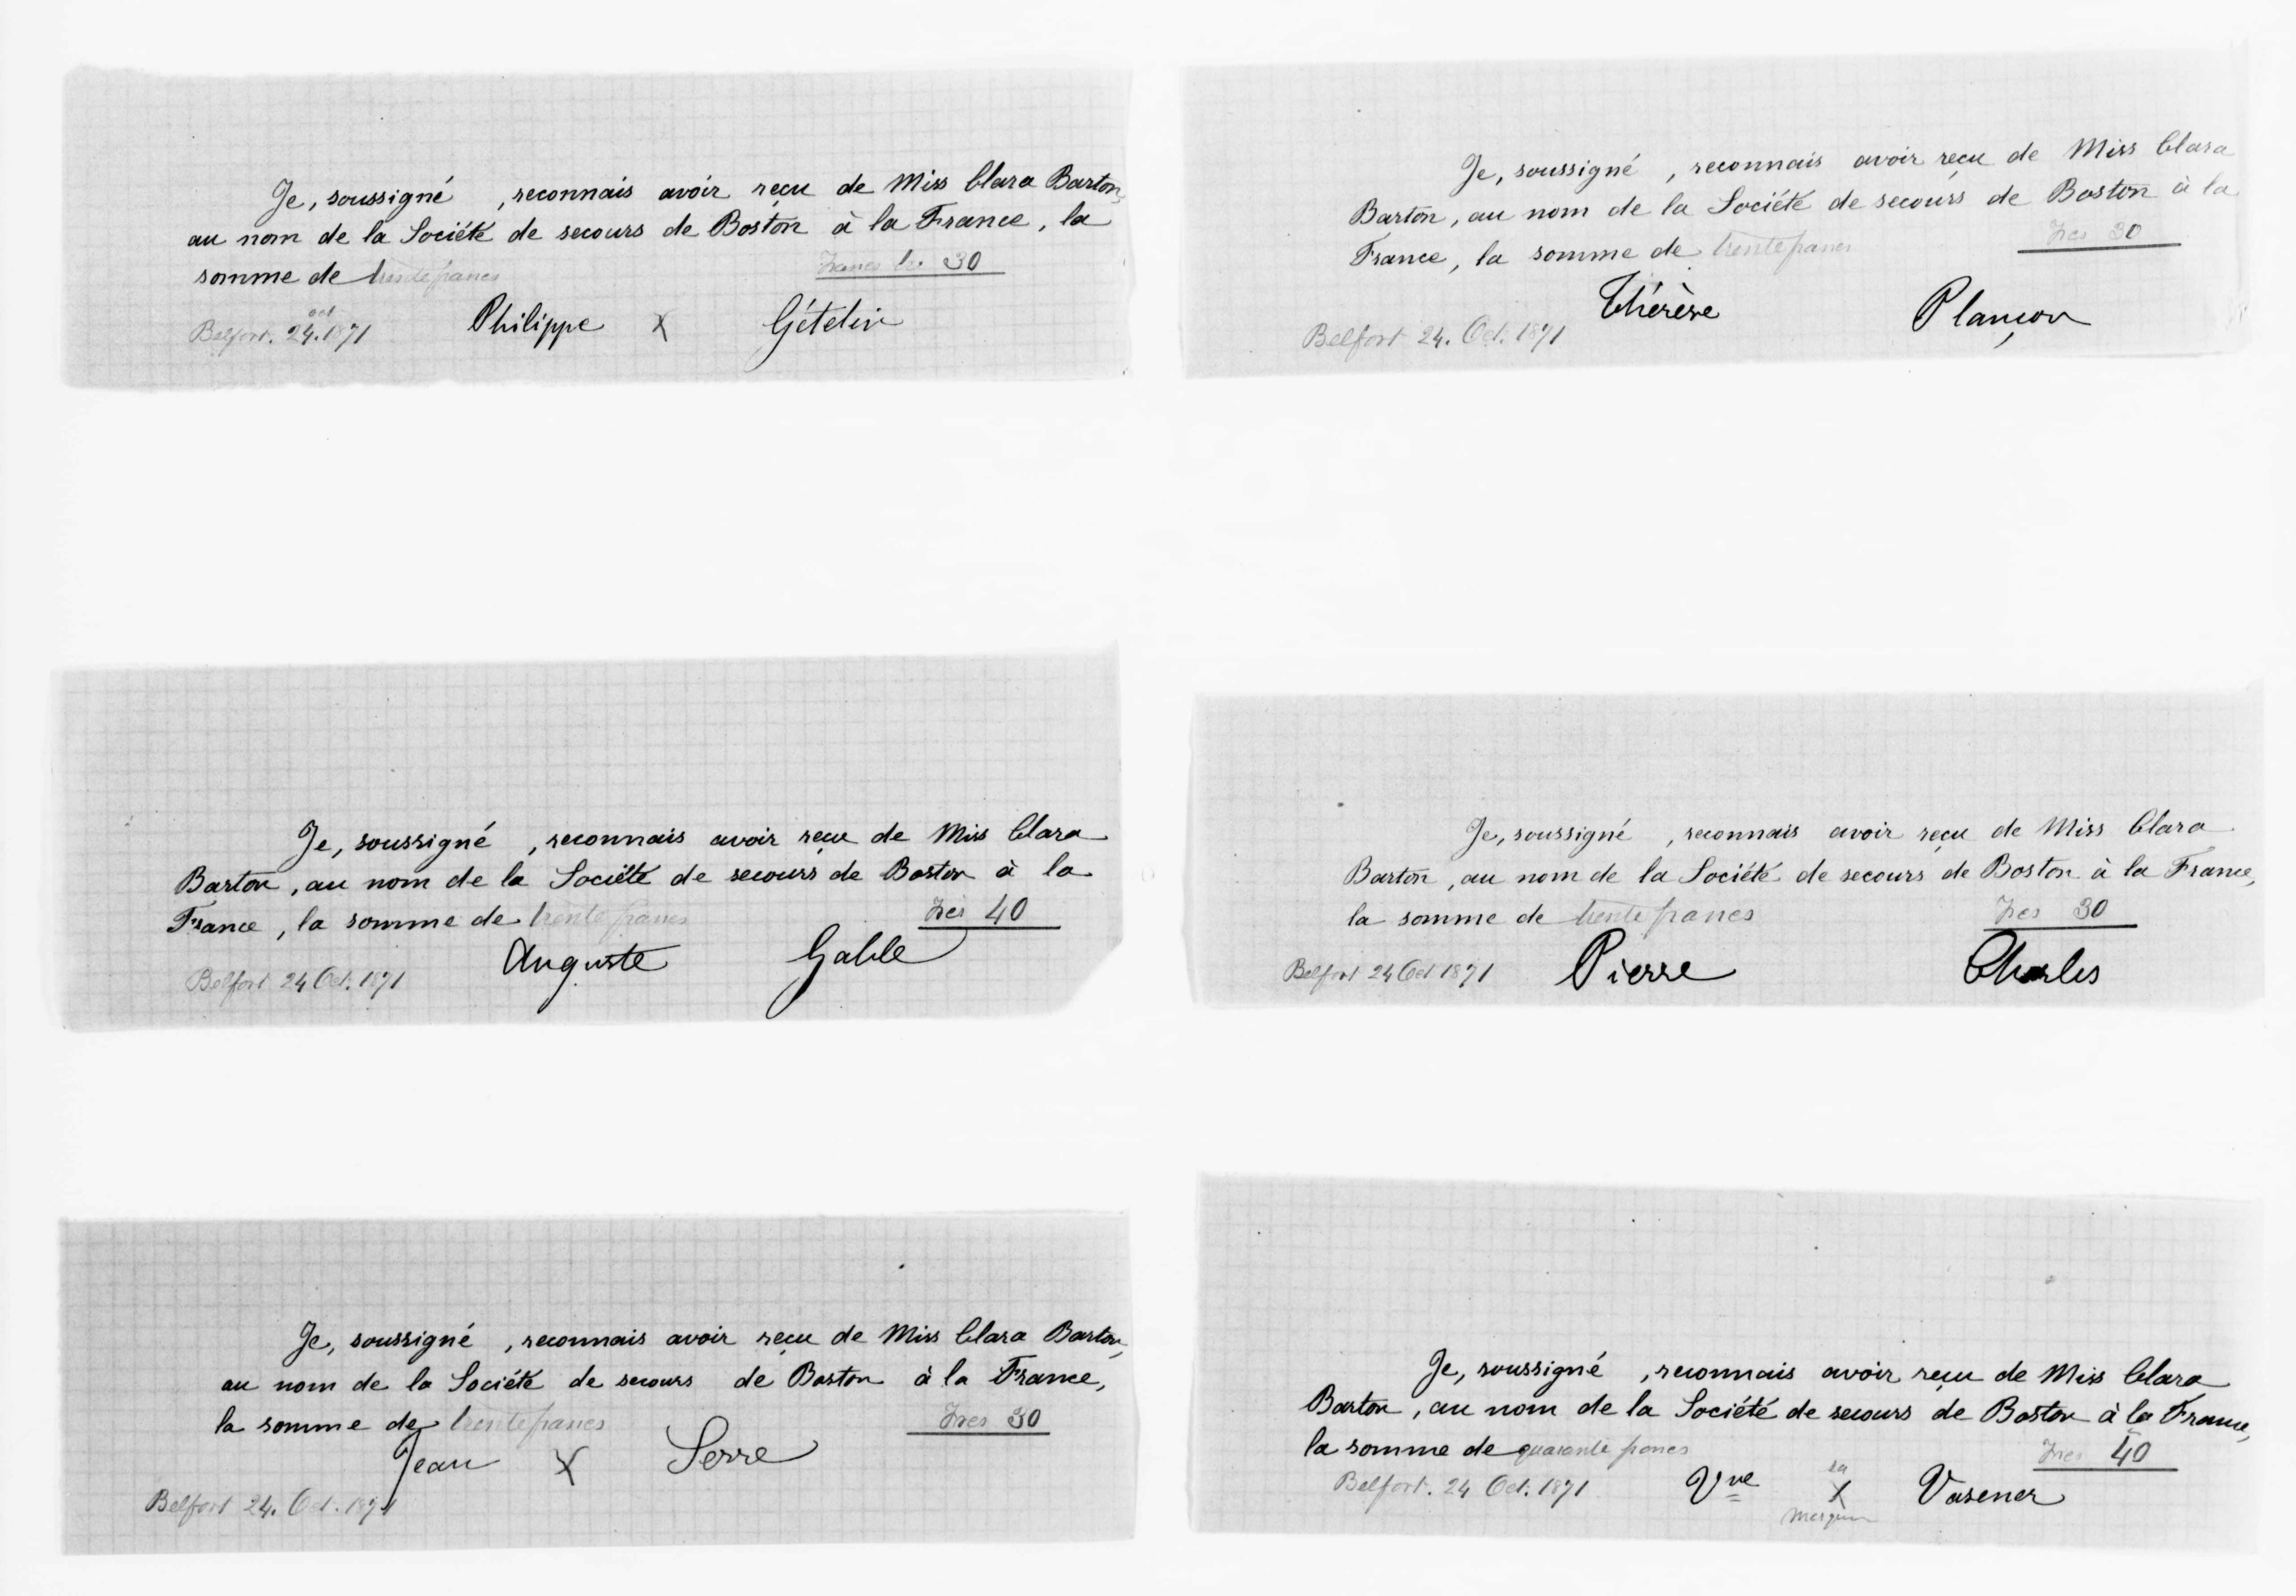 Je, soussigné , reconnais avoir reçu de Miss Clara Barton,
au nom de la Société de secours de Boston à la France, la
somme de trente francs 30
oct
Belfort. 24. 1871 Philippe X Gételin
Je, soussigné , reconnais avoir reçu de Miss Clara
Barton, au nom de la Société de secours de Boston à la
France, la somme de trente francs Frcs 30
Belfort 24. Oct. 1871 Thérèse Plançon
Je, soussigné , reconnais avoir reçu de Miss Clara
Barton, au nom de la Société de secours de Boston à la
France, la somme de trente francs Frcs 40
Belfort 24 Oct. 1871 Auguste Gable
Je, soussigné , reconnais avoir reçu de Miss Clara
Barton, au nom de la Société de secours de Boston à la France,
la somme de trente francs Frcs 30
Belfort 24 Oct 1871 Pierre Charles
Je, soussigné , reconnais avoir reçu de Miss Clara Barton,
au nom de la Société de secours de Boston à la France,
la somme de trente francs Frcs 30
Jean X Serre
Belfort 24. Oct. 1871
Je, soussigné , reconnais avoir reçu de Miss Clara
Barton, au nom de la Société de secours de Boston à la France,
la somme de quarante francs Frcs 40
sa
Belfort. 24 Oct. 1871 Vve X Vasener